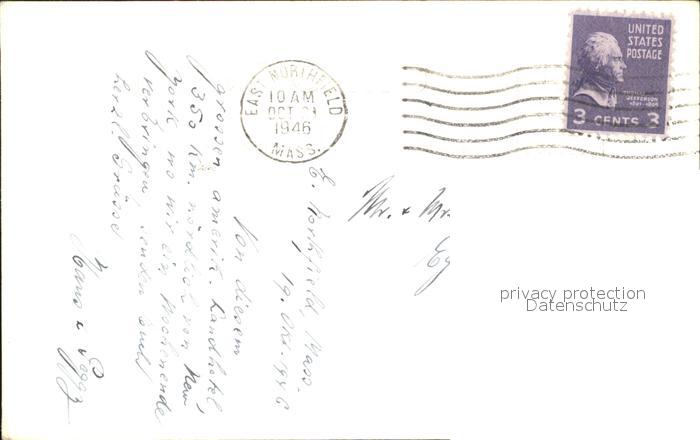 UNITED
STATES
POSTAGE
THOMAS
JEFFERSON
1801-1809
3 CENTS 3
EAST NORTHFIELD
10 AM
OCT 21
1946
MASS.
E. Northfield, Mass.
19. Okt. 1946
Von diesem
grossen amerik. Landhotel,
350 Km. nördlich von New
York wo wir ein Wochenende
verbringen senden euch
herzl. Grüsse
Hans u.
Mr. & Mr
privacy protection
Datenschutz